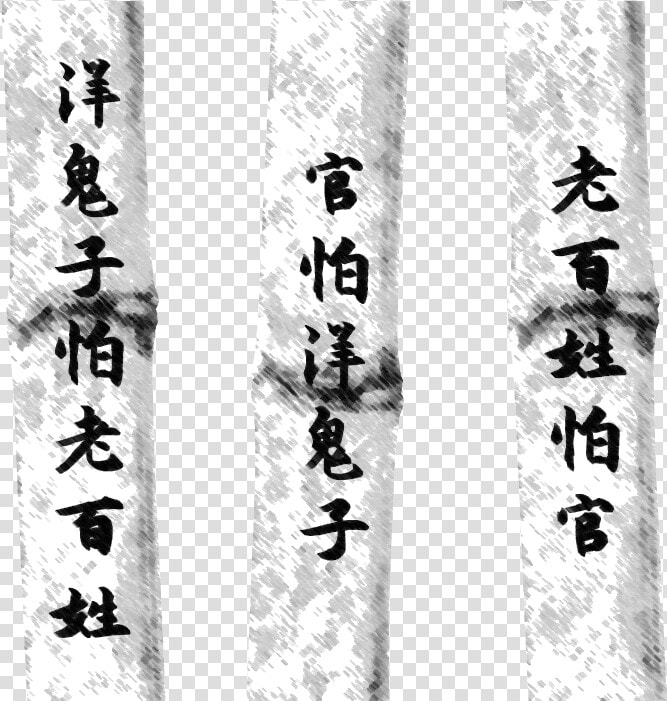 老百姓怕官
官怕洋鬼子
洋鬼子怕老百姓